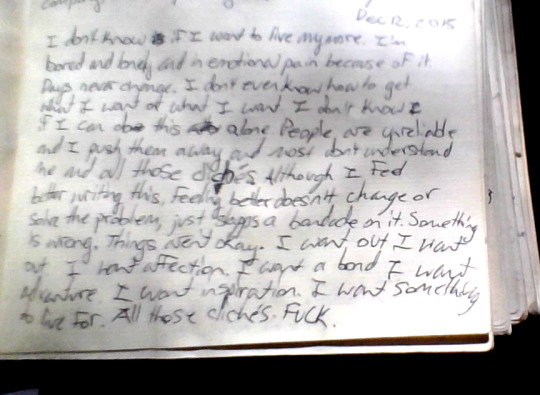 Dec 12, 2015
I don't know if I want to live anymore. I'm
bored and lonely and in emotional pain because of it.
Days never change. I don't even know how to get
what I want or what I want I don't know
if I can do this alone People are unreliable
and I push them away and most don't understand
me and all those clichés Although I feel
better writing this, feeling better doesn't change or
solve the problem, just slapps a bandade on it. Something
is wrong. Things aren't okay. I want out I want
out. I want affection. I want a bond I want
adventure. I want inspiration. I want something
to live for. All those clichés. FUCK.